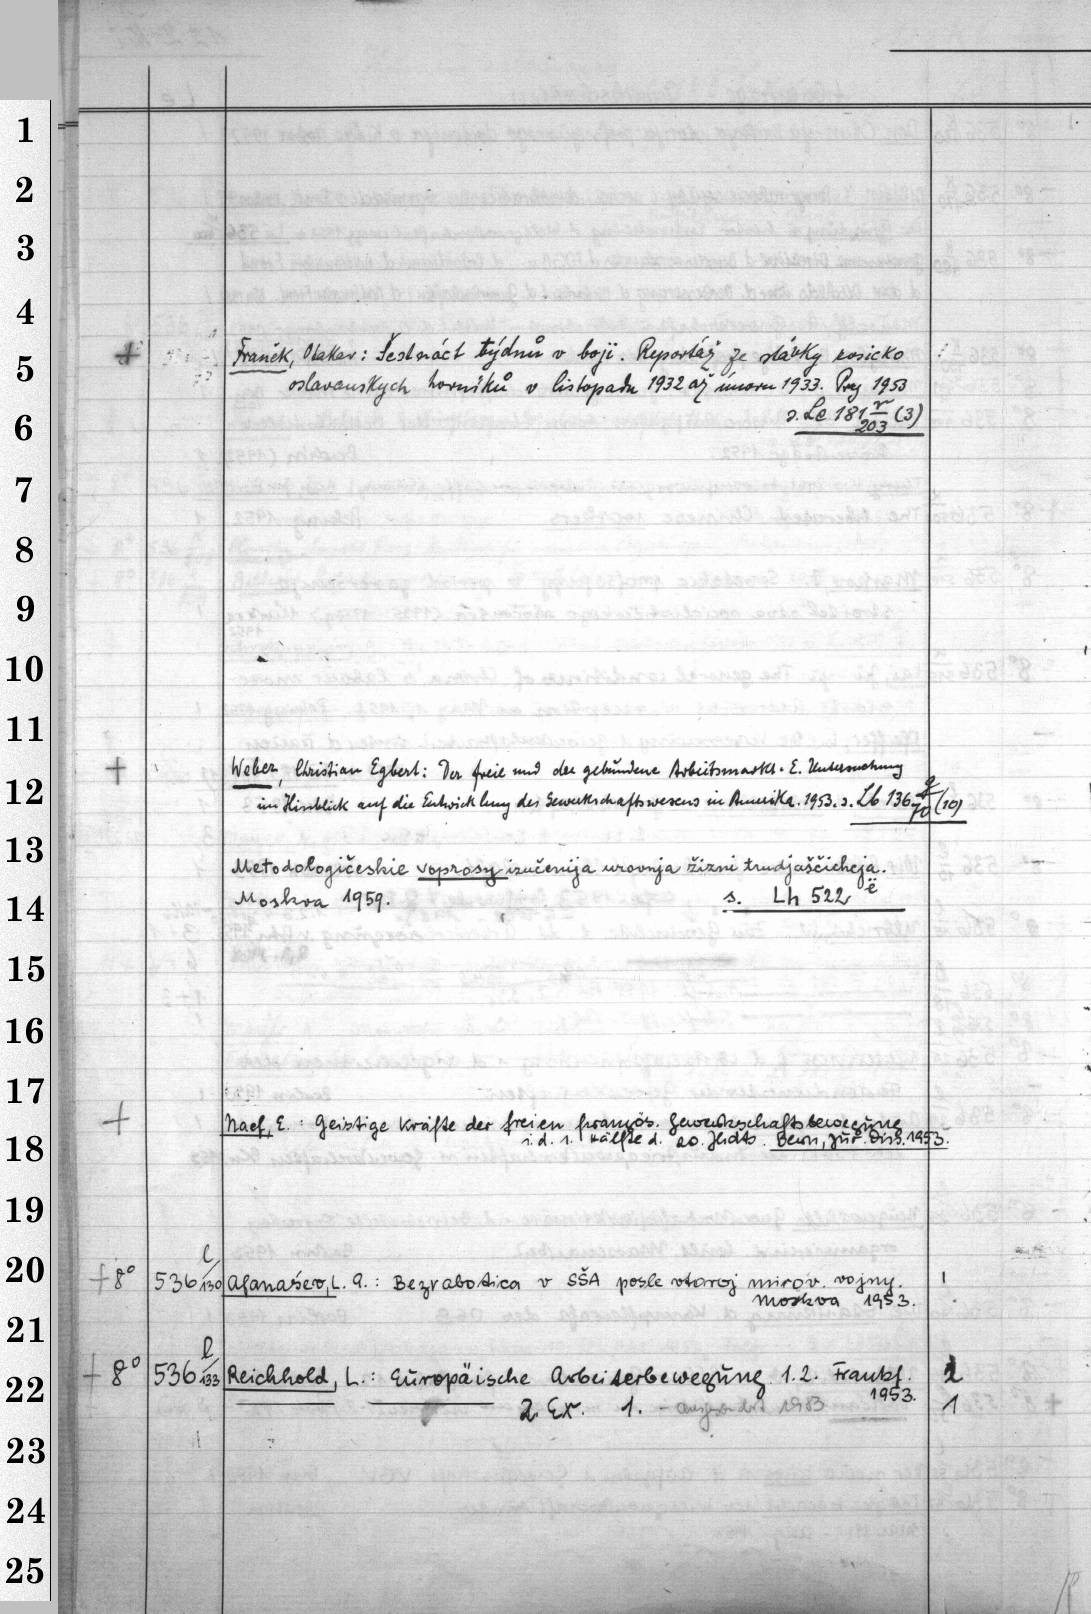 1
2
3
4
5
6
7
8
9
10
11
12
13
14
15
16
17
18
19
20
21
22
23
24
25
+ Franěk, Otakar: Šestnáct týdnů v boji. Reportáž ze stávky rosicko
oslavanských horníků v listopadu 1932 až únoru 1933. Prag 1953
s. Le 181 r/203 (3)
+ Weber, Christian Egbert: Der freie und der gebundene Arbeitsmarkt. E. Untersuchung
im Hinblick auf die Entwicklung des Gewerkschaftswesens in Amerika. 1953. s. Lb 136 g/70 (10)
Metodologičeskie voprosy izučenija urovnja žizni trudjaščichcja.
Moskva 1959. s. Lh 522 ë
+ Naef, E.: Geistige Kräfte der freien französ. Gewerkschaftsbewegung
i.d. 1. Hälfte d. 20. Jhdts. Bern, Jur. Diss. 1953.
+ 8° 536 l/130 Afanaśev, L. A.: Bezrabotica v SŠA posle vtoroj mirov. vojny. 1
Moskva 1953.
+ 8° 536 l/133 Reichhold, L.: Europäische Arbeiterbewegung 1.2. Frankf. 2
1953.
2. Ex. 1. - ausgesondert 1983 1